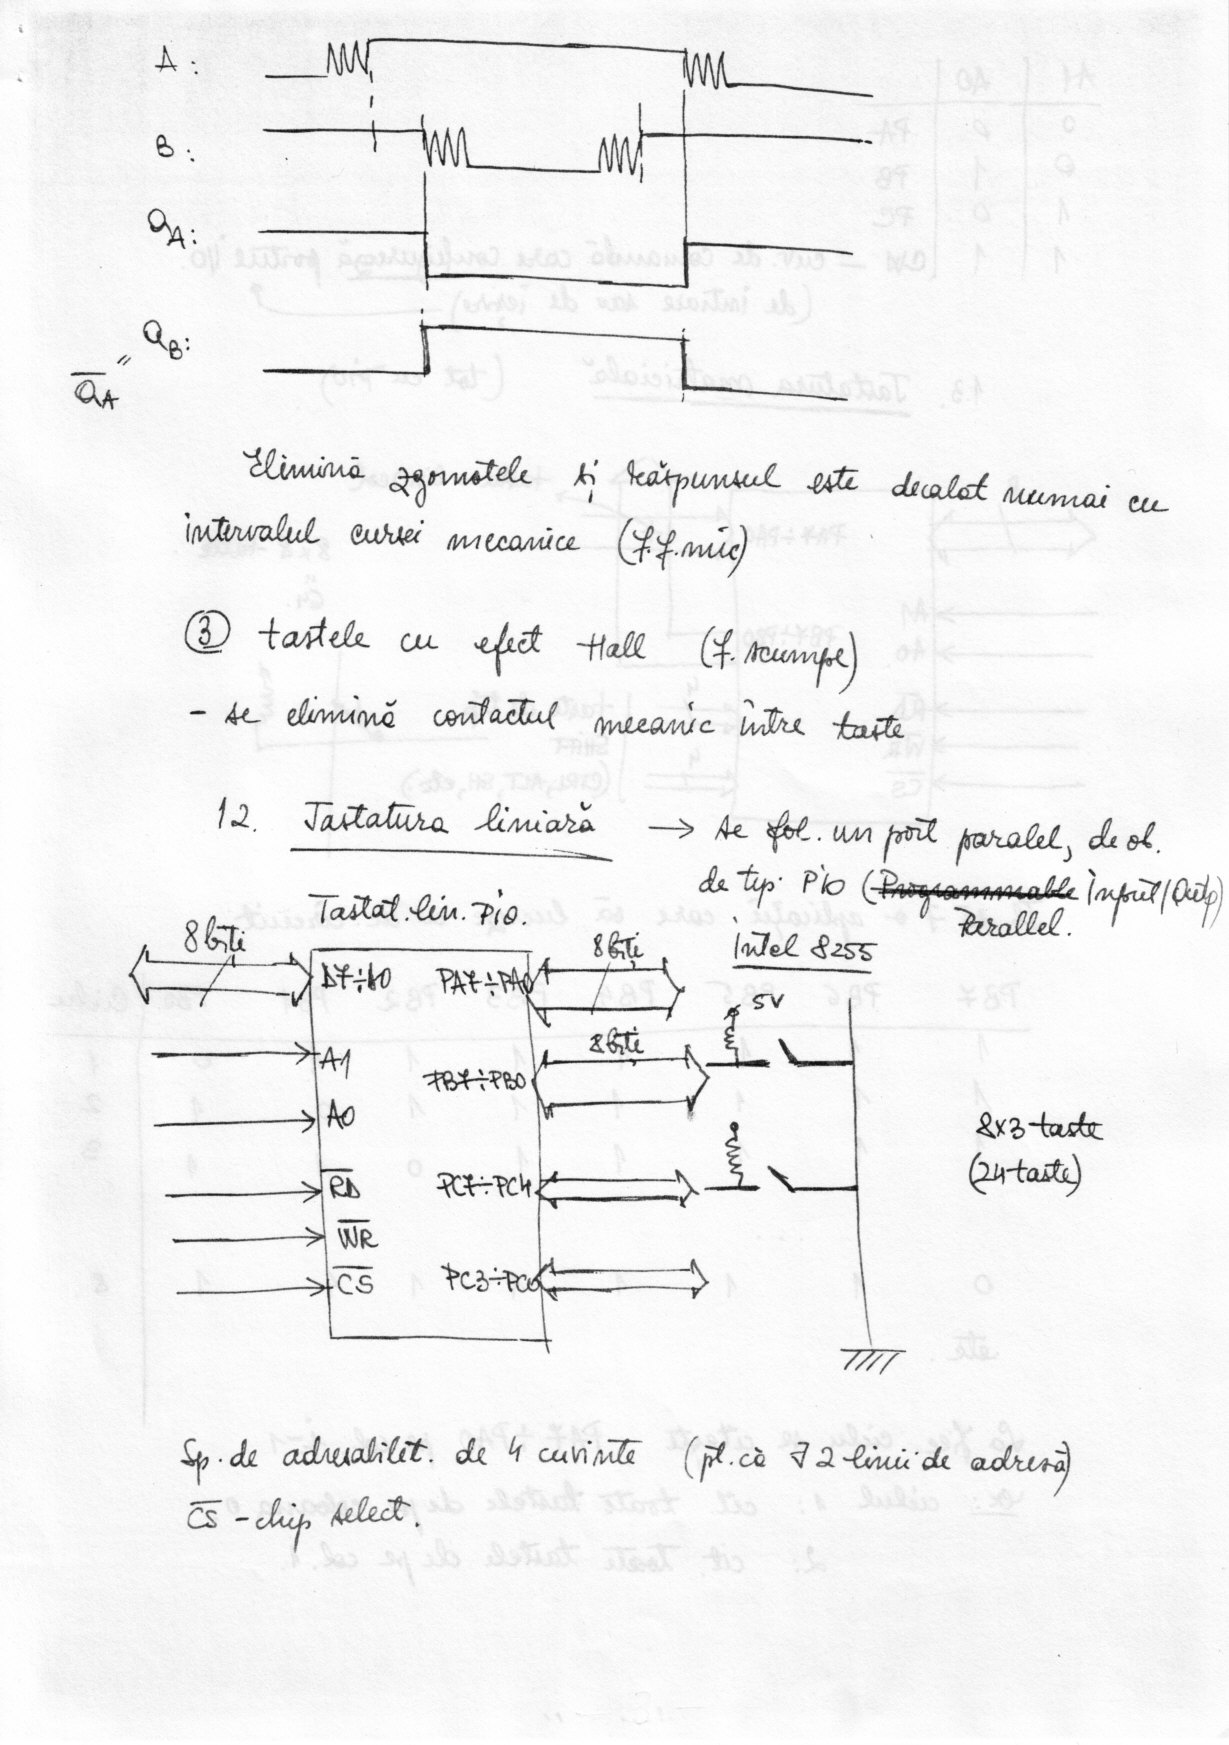 A:
B:
QA:
QB:
"
Q̅A̅
Elimină zgomotele și răspunsul este decalat numai cu
intervalul cursei mecanice (f.f.mic)
③ tastele cu efect Hall (f. scumpe)
- se elimină contactul mecanic între taste
12. Tastatura liniară → se fol. un port paralel, de ob.
de tip PIO (Programmable Input/Outp)
Parallel.
Tastat. lin. Pio.
Intel 8255
8 biți
D7÷D0
PA7÷PA0
8 biți
5V
A1
PB7÷PB0
8 biți
A0
8x3 taste
(24 taste)
R̅D̅
PC7÷PC4
W̅R̅
C̅S̅
PC3÷PC0
Sp. de adresabilit. de 4 cuvinte (pt. că ∃ 2 linii de adresă)
C̅S̅ - chip select.